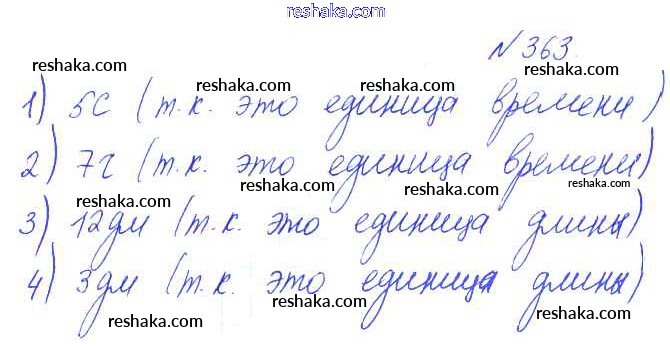 reshaka.com
N 363.
reshaka.com reshaka.com reshaka.com
1) 5с (т.к. это единица времени)
2) 7г (т.к. это единица времени)
reshaka.com reshaka.com reshaka.com
3) 12дм (т.к. это единица длины)
4) 3дм (т.к. это единица длины)
reshaka.com reshaka.com reshaka.com
reshaka.com reshaka.com